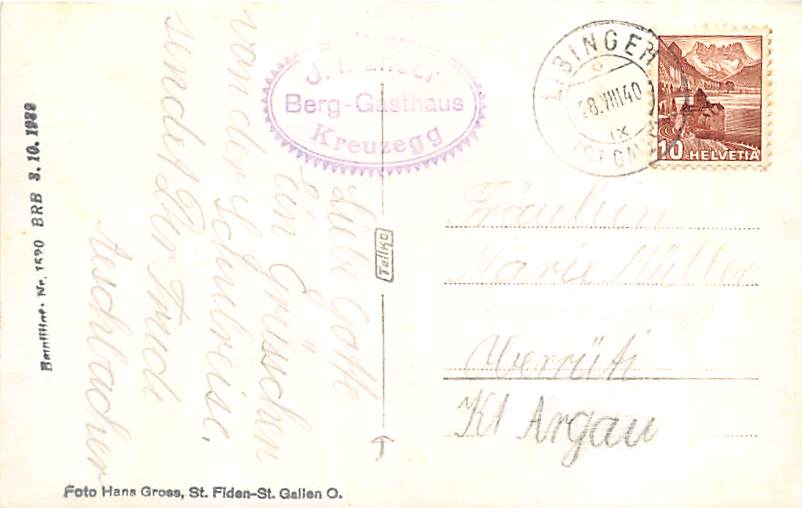 Liebe Gotte
Ein Grüsschen
von der Schulreise,
sendet Dir Trudi
Aeschbacher
J.
Berg-Gasthaus
Kreuzegg
LIBINGEN
28.VIII.40
IX
(ST. GALLEN)
10 HELVETIA
Fräulein
Marie Müller
Oberrüti
Kt Argau
Tellko
Bewilligt. Nr. 1690 BRB 3. 10. 1939
Foto Hans Gross, St. Fiden-St. Gallen O.